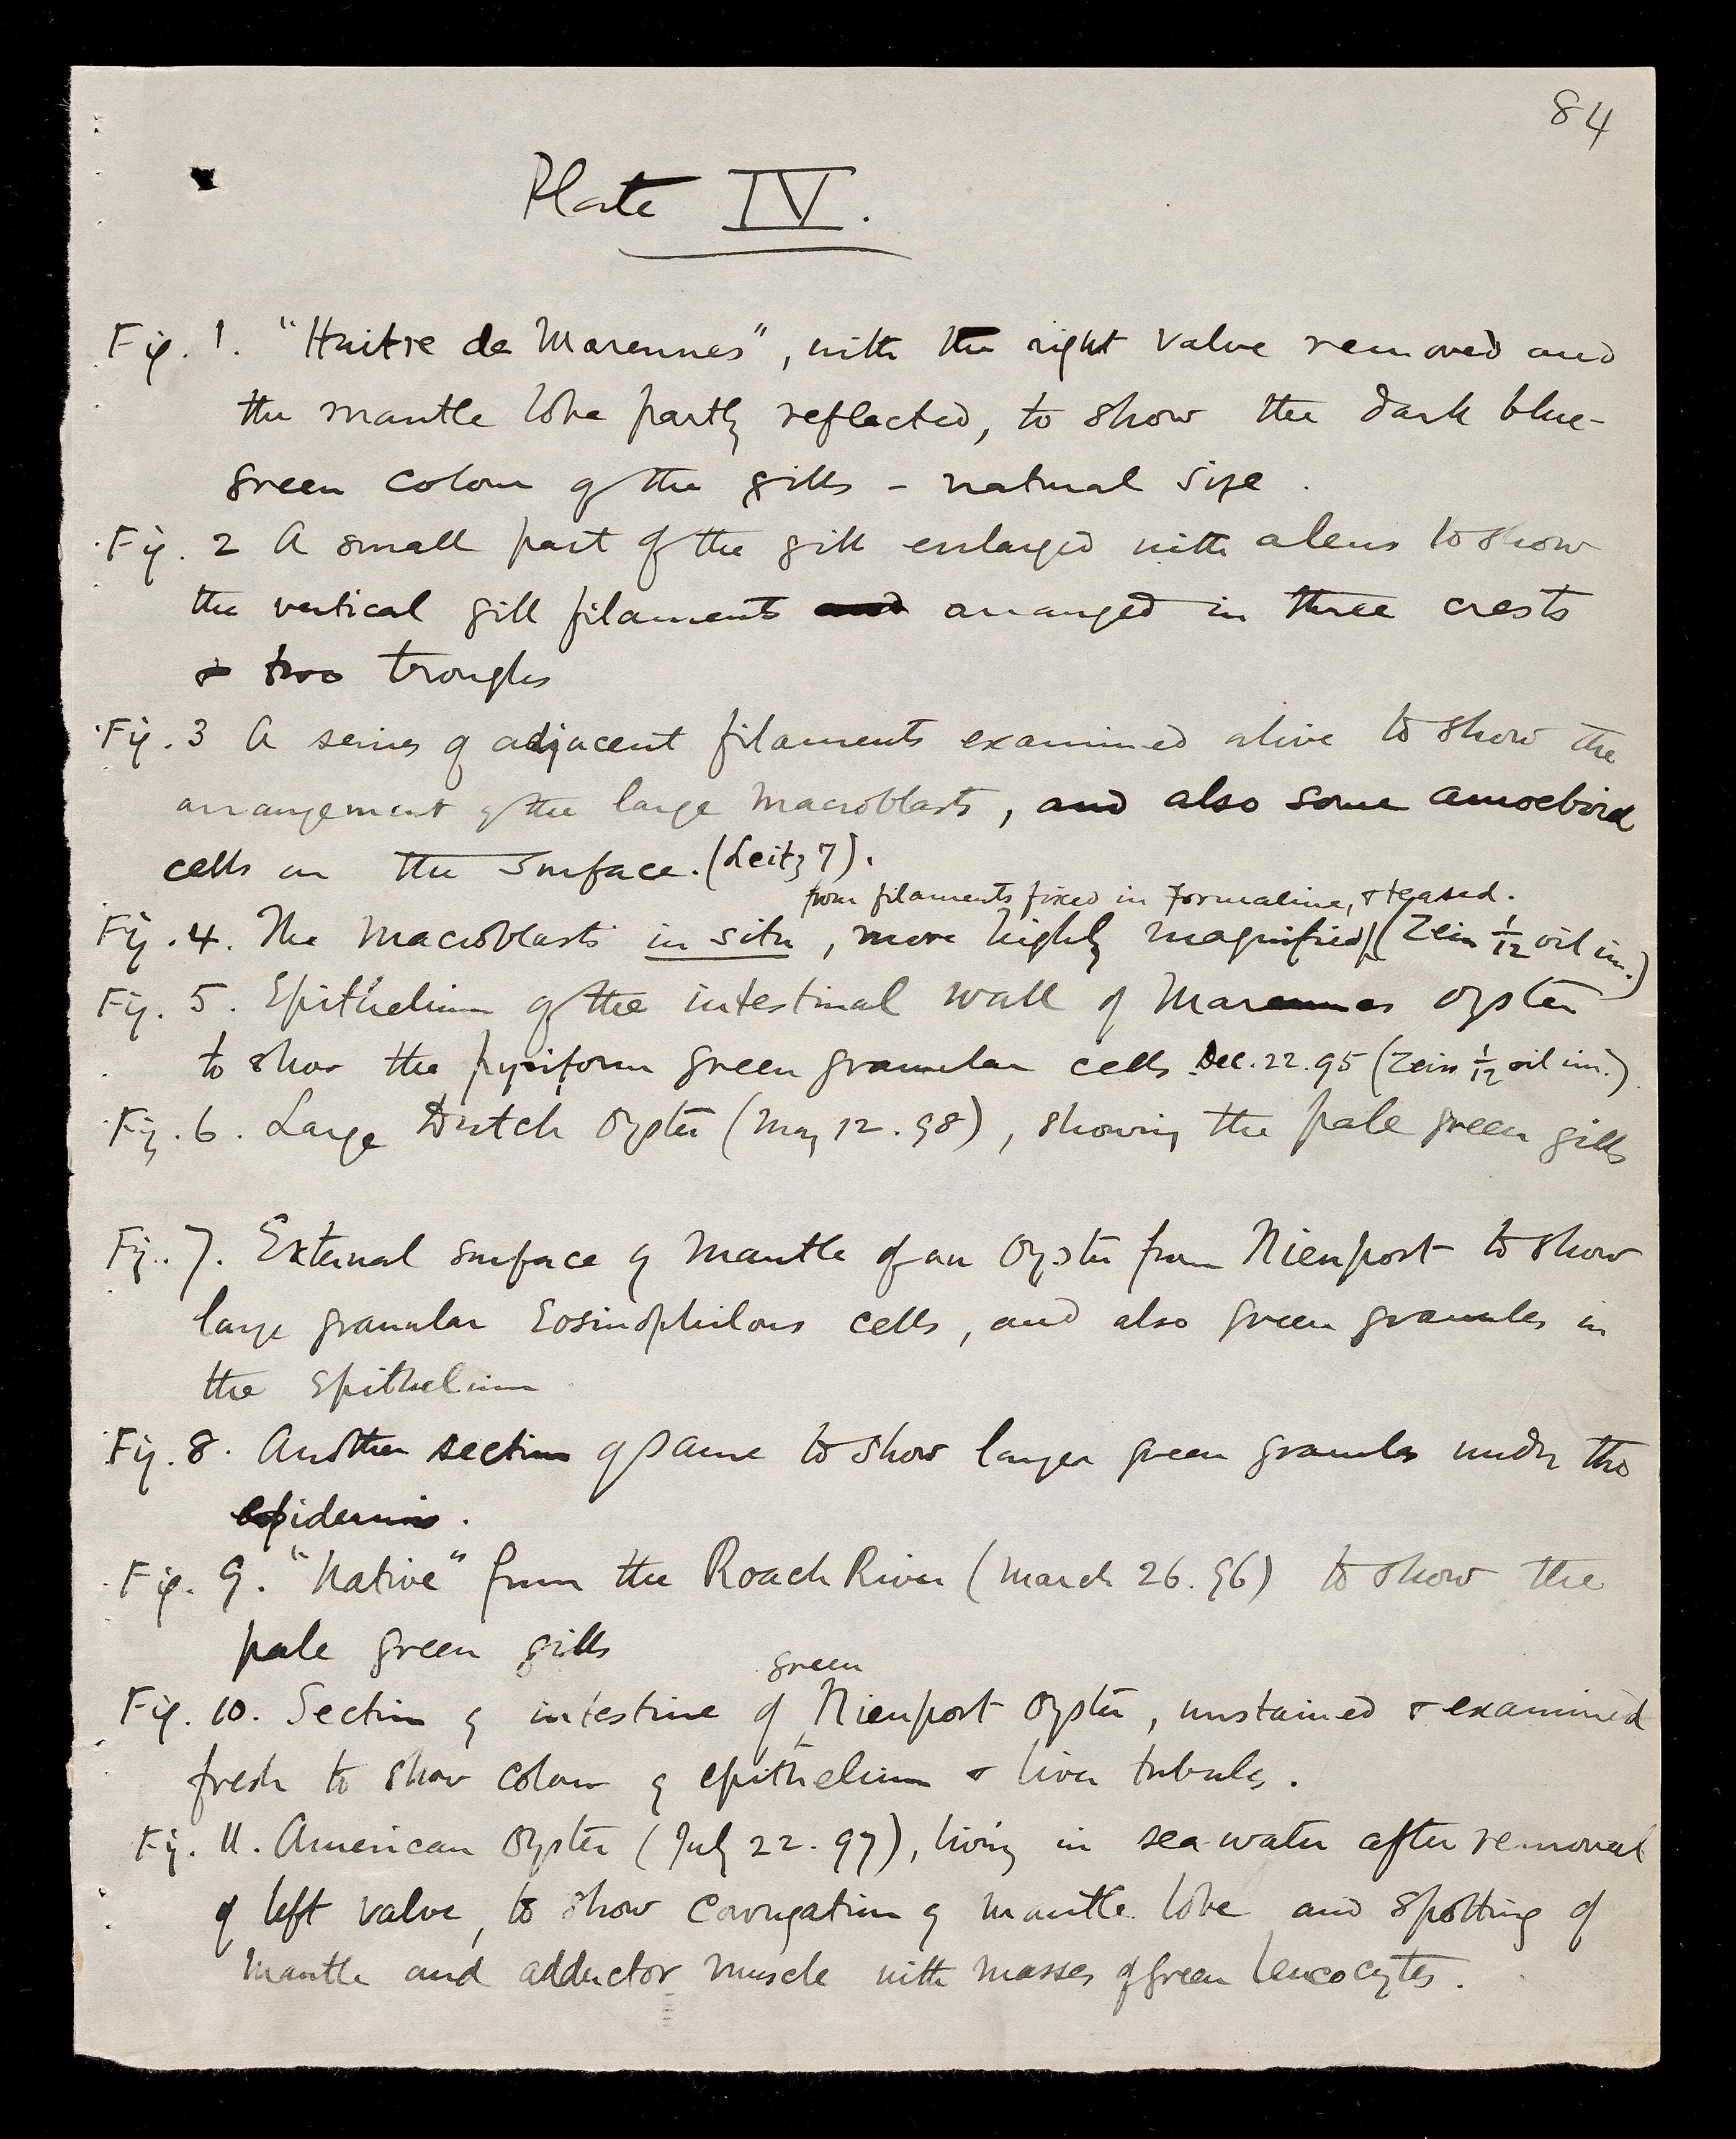 84
Plate IV.
Fig. 1. "Huitre de Marennes", with the right valve removed and
the mantle lobe partly reflected, to show the dark blue-
green colour of the gills - natural size.
Fig. 2 A small part of the gill enlarged with a lens to show
the vertical gill filaments and arranged in three crests
& two troughs
Fig. 3 A series of adjacent filaments examined alive to show the
arrangement of the large macroblasts, and also some amoeboid
cells on the surface. (Leitz 7).
from filaments fixed in Formaline, & teased.
Fig. 4. The macroblasts in situ, more highly magnified (Zeiss 1/12 oil im.)
Fig. 5. Epithelium of the intestinal wall of Marennes oyster
to show the pyriform green granular cells Dec. 22. 95 (Zeiss 1/12 oil im.).
Fig. 6. Large Dutch Oyster (May 12. 98), showing the pale green gills
Fig. 7. External surface of mantle of an Oyster from Nieuport to show
large granular Eosinophilous cells, and also green granules in
the Epithelium
Fig. 8. Another section of same to show larger green granules under the
epidermis.
Fig. 9. "Native" from the Roach River (March 26. 96) to show the
pale green gills
green
Fig. 10. Section of intestine of Nieuport Oyster, unstained & examined
fresh to show colour of epithelium & liver tubules.
Fig. 11. American Oyster (July 22. 97), living in sea water after removal
of left valve, to show corrugation of mantle lobe and spotting of
mantle and adductor muscle with masses of green leucocytes.